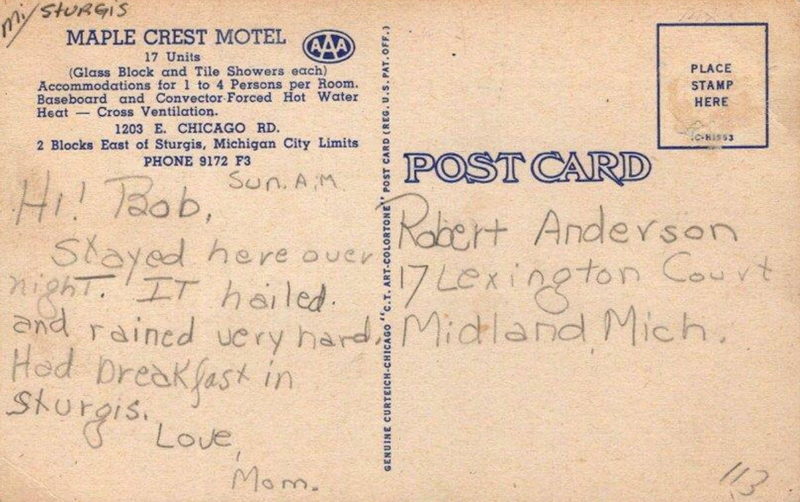 Mi/STURGIS
MAPLE CREST MOTEL
AAA
17 Units
(Glass Block and Tile Showers each)
Accommodations for 1 to 4 Persons per Room.
Baseboard and Convector-Forced Hot Water
Heat — Cross Ventilation.
1203 E. CHICAGO RD.
2 Blocks East of Sturgis, Michigan City Limits
PHONE 9172 F3
Sun. A.M.
Hi! Bob,
Stayed here over
night. IT hailed.
and rained very hard.
Had breakfast in
Sturgis.
Love,
Mom.
GENUINE CURTEICH-CHICAGO "C.T. ART-COLORTONE" POST CARD (REG. U.S. PAT. OFF.)
PLACE
STAMP
HERE
POST CARD
Robert Anderson
17 Lexington Court
Midland, Mich.
113